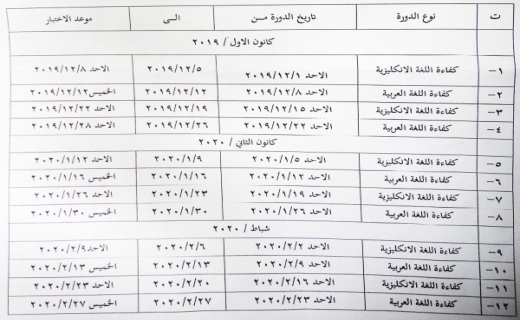 ت نوع الدورة تاريخ الدورة مـن الـى موعد الاختبار
كانون الاول / ٢٠١٩
١- كفاءة اللغة الانكليزية الاحد ٢٠١٩/١٢/١ ٢٠١٩/١٢/٥ الاحد ٢٠١٩/١٢/٨
٢- كفاءة اللغة العربية الاحد ٢٠١٩/١٢/٨ ٢٠١٩/١٢/١٢ الخميس ٢٠١٩/١٢/١٢
٣- كفاءة اللغة الانكليزية الاحد ٢٠١٩/١٢/١٥ ٢٠١٩/١٢/١٩ الاحد ٢٠١٩/١٢/٢٢
٤- كفاءة اللغة العربية الاحد ٢٠١٩/١٢/٢٢ ٢٠١٩/١٢/٢٦ الاحد ٢٠١٩/١٢/٢٨
كانون الثاني / ٢٠٢٠
٥- كفاءة اللغة الانكليزية الاحد ٢٠٢٠/١/٥ ٢٠٢٠/١/٩ الاحد ٢٠٢٠/١/١٢
٦- كفاءة اللغة العربية الاحد ٢٠٢٠/١/١٢ ٢٠٢٠/١/١٦ الخميس ٢٠٢٠/١/١٦
٧- كفاءة اللغة الانكليزية الاحد ٢٠٢٠/١/١٩ ٢٠٢٠/١/٢٣ الاحد ٢٠٢٠/١/٢٦
٨- كفاءة اللغة العربية الاحد ٢٠٢٠/١/٢٦ ٢٠٢٠/١/٣٠ الخميس ٢٠٢٠/١/٣٠
شباط / ٢٠٢٠
٩- كفاءة اللغة الانكليزية الاحد ٢٠٢٠/٢/٢ ٢٠٢٠/٢/٦ الاحد ٢٠٢٠/٢/٩
١٠- كفاءة اللغة العربية الاحد ٢٠٢٠/٢/٩ ٢٠٢٠/٢/١٣ الخميس ٢٠٢٠/٢/١٣
١١- كفاءة اللغة الانكليزية الاحد ٢٠٢٠/٢/١٦ ٢٠٢٠/٢/٢٠ الاحد ٢٠٢٠/٢/٢٣
١٢- كفاءة اللغة العربية الاحد ٢٠٢٠/٢/٢٣ ٢٠٢٠/٢/٢٧ الخميس ٢٠٢٠/٢/٢٧